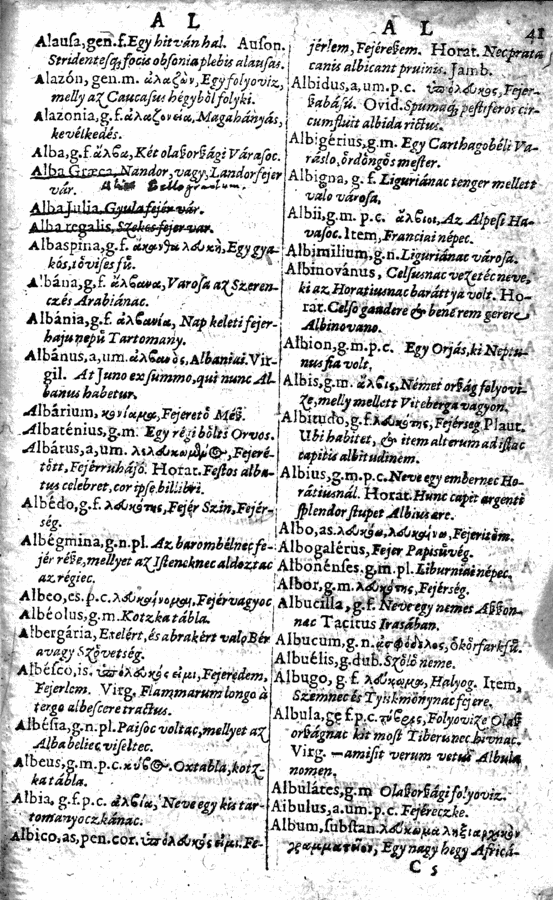 A L
Alausa, gen. f. Egy hitván hal. Auson.
Stridentesq́; focis obsonia plebis alausas.
Alazón, gen. m. ἀλαζὼν, Egy folyoviz,
melly az Caucasus hégyből folyki.
Alazonia, g. f. ἀλαζονεία, Magahányás,
kevélkedés.
Alba, g. f. ἄλβα, Két olaßorßági Várasoc.
Alba Græca, Nandor, vagy, Landorfejer
vár.
Alba Julia, Gyulafejér vár.
Alba regalis, Szekes fejer var.
Albaspina, g. f. ἄκανθα λευκὴ, Egy gya-
kós, tövises fű.
Albána, g. f. ἄλβανα, Varosa az Szeren-
czés Arabiánac.
Albánia, g. f. ἀλβανία, Nap keleti fejer-
haju nepű Tartomany.
Albánus, a, um. ἀλβανὸς, Albaniai. Vir-
gil. At Juno ex summo, qui nunc Al-
banus habetur.
Albárium, κονίαμα, Fejerető Méß.
Albaténius, g. m. Egy régi bölts Orvos.
Albátus, a, um. λελευκωμένος, Fejeré-
tött, Fejérruhájó. Horat. Festos alba-
tus celebret, cor ipse bilibri.
Albédo, g. f. λευκότης, Fejér Szin, Fejér-
ség.
Albégmina, g. n. pl. Az barombélnec fe-
jér réße, mellyet az Isteneknec aldoztac
az régiec.
Albeo, es. p. c. λευκαίνομαι, Fejérvagyoc
Albéolus, g. m. Kotzka tábla.
Albergária, Etelért, és abrakért valo Bér
avagy Szövetség.
Albésco, is. ὑπόλευκός εἰμι, Fejeredem,
Fejerlem. Virg. Flammarum longo à
tergo albescere tractus.
Albésia, g. n. pl. Paisoc voltac, mellyet az
Albabeliec viseltec.
Albeus, g. m. p. c. κύβος, Oxtabla, kotz-
ka tábla.
Albia, g. f. p. c. ἀλβία, Neve egy kis tar-
tomanyoczkánac.
Albico, as, pen. cor. ὑπόλευκός εἰμι. Fe-
A L 41
jérlem, Fejéreßem. Horat. Nec prata
canis albicant pruinis. Jamb.
Albidus, a, um. p. c. ὑπόλευκος, Fejer-
ßabású. Ovid. Spumaq́; pestiferos cir-
cumfluit albida rictus.
Albigérius, g. m. Egy Carthagobéli Va-
ráslo, ördöngös mester.
Albigna, g. f. Liguriánac tenger mellett
valo városa.
Albii, g. m. p. c. ἄλβιοι, Az Alpesi Ha-
vasoc. Item, Franciai népec.
Albimilium, g. n. Liguriánac városa.
Albinovánus, Celsusnac vezetéc neve,
ki az Horatiusnac baráttya volt. Ho-
rat. Celso gaudere & bene rem gerere
Albinovano.
Albion, g. m. p. c. Egy Orjás, ki Neptu-
nus fia volt.
Albis, g. m. ἄλβις, Német orßág folyovi-
ze, melly mellett Viteberga vagyon.
Albitudo, g. f. λευκότης, Fejérseg. Plaut.
Ubi habitet, & item alterum ad istac
capitis albitudinem.
Albius, g. m. p. c. Neve egy embernec Ho-
rátiusnál. Horat. Hunc capit argenti
splendor stupet Albius ære.
Albo, as. λευκόω, λευκαίνω, Fejeritöm.
Albogalérus, Fejer Papisüvég.
Albonénses, g. m. pl. Liburniai népec.
Albor, g. m. λευκότης, Fejérség.
Albucilla, g. f. Neve egy nemes Aßßon-
nac Tacitus Irasában.
Albucum, g. n. ἀσφόδελος, ökörfarkfű.
Albuélis, g. dub. Szölö neme.
Albugo, g. f. λεύκωμα, Halyog. Item,
Szemnec és Tyúkmonynac fejere.
Albula, ge f. p. c. τύβερις, Folyovize Olaß
orßágnac kit most Tiberisnec hivnac.
Virg. — amisit verum vetus Albula
nomen.
Albuláres, g. m Olaßorßági folyoviz.
Albulus, a, um. p. c. Fejéreczke.
Album, substan. λεύκωμα ληξιαρχικὸν
γραμματεῖον, Egy nagy hegy Africá-
C 5